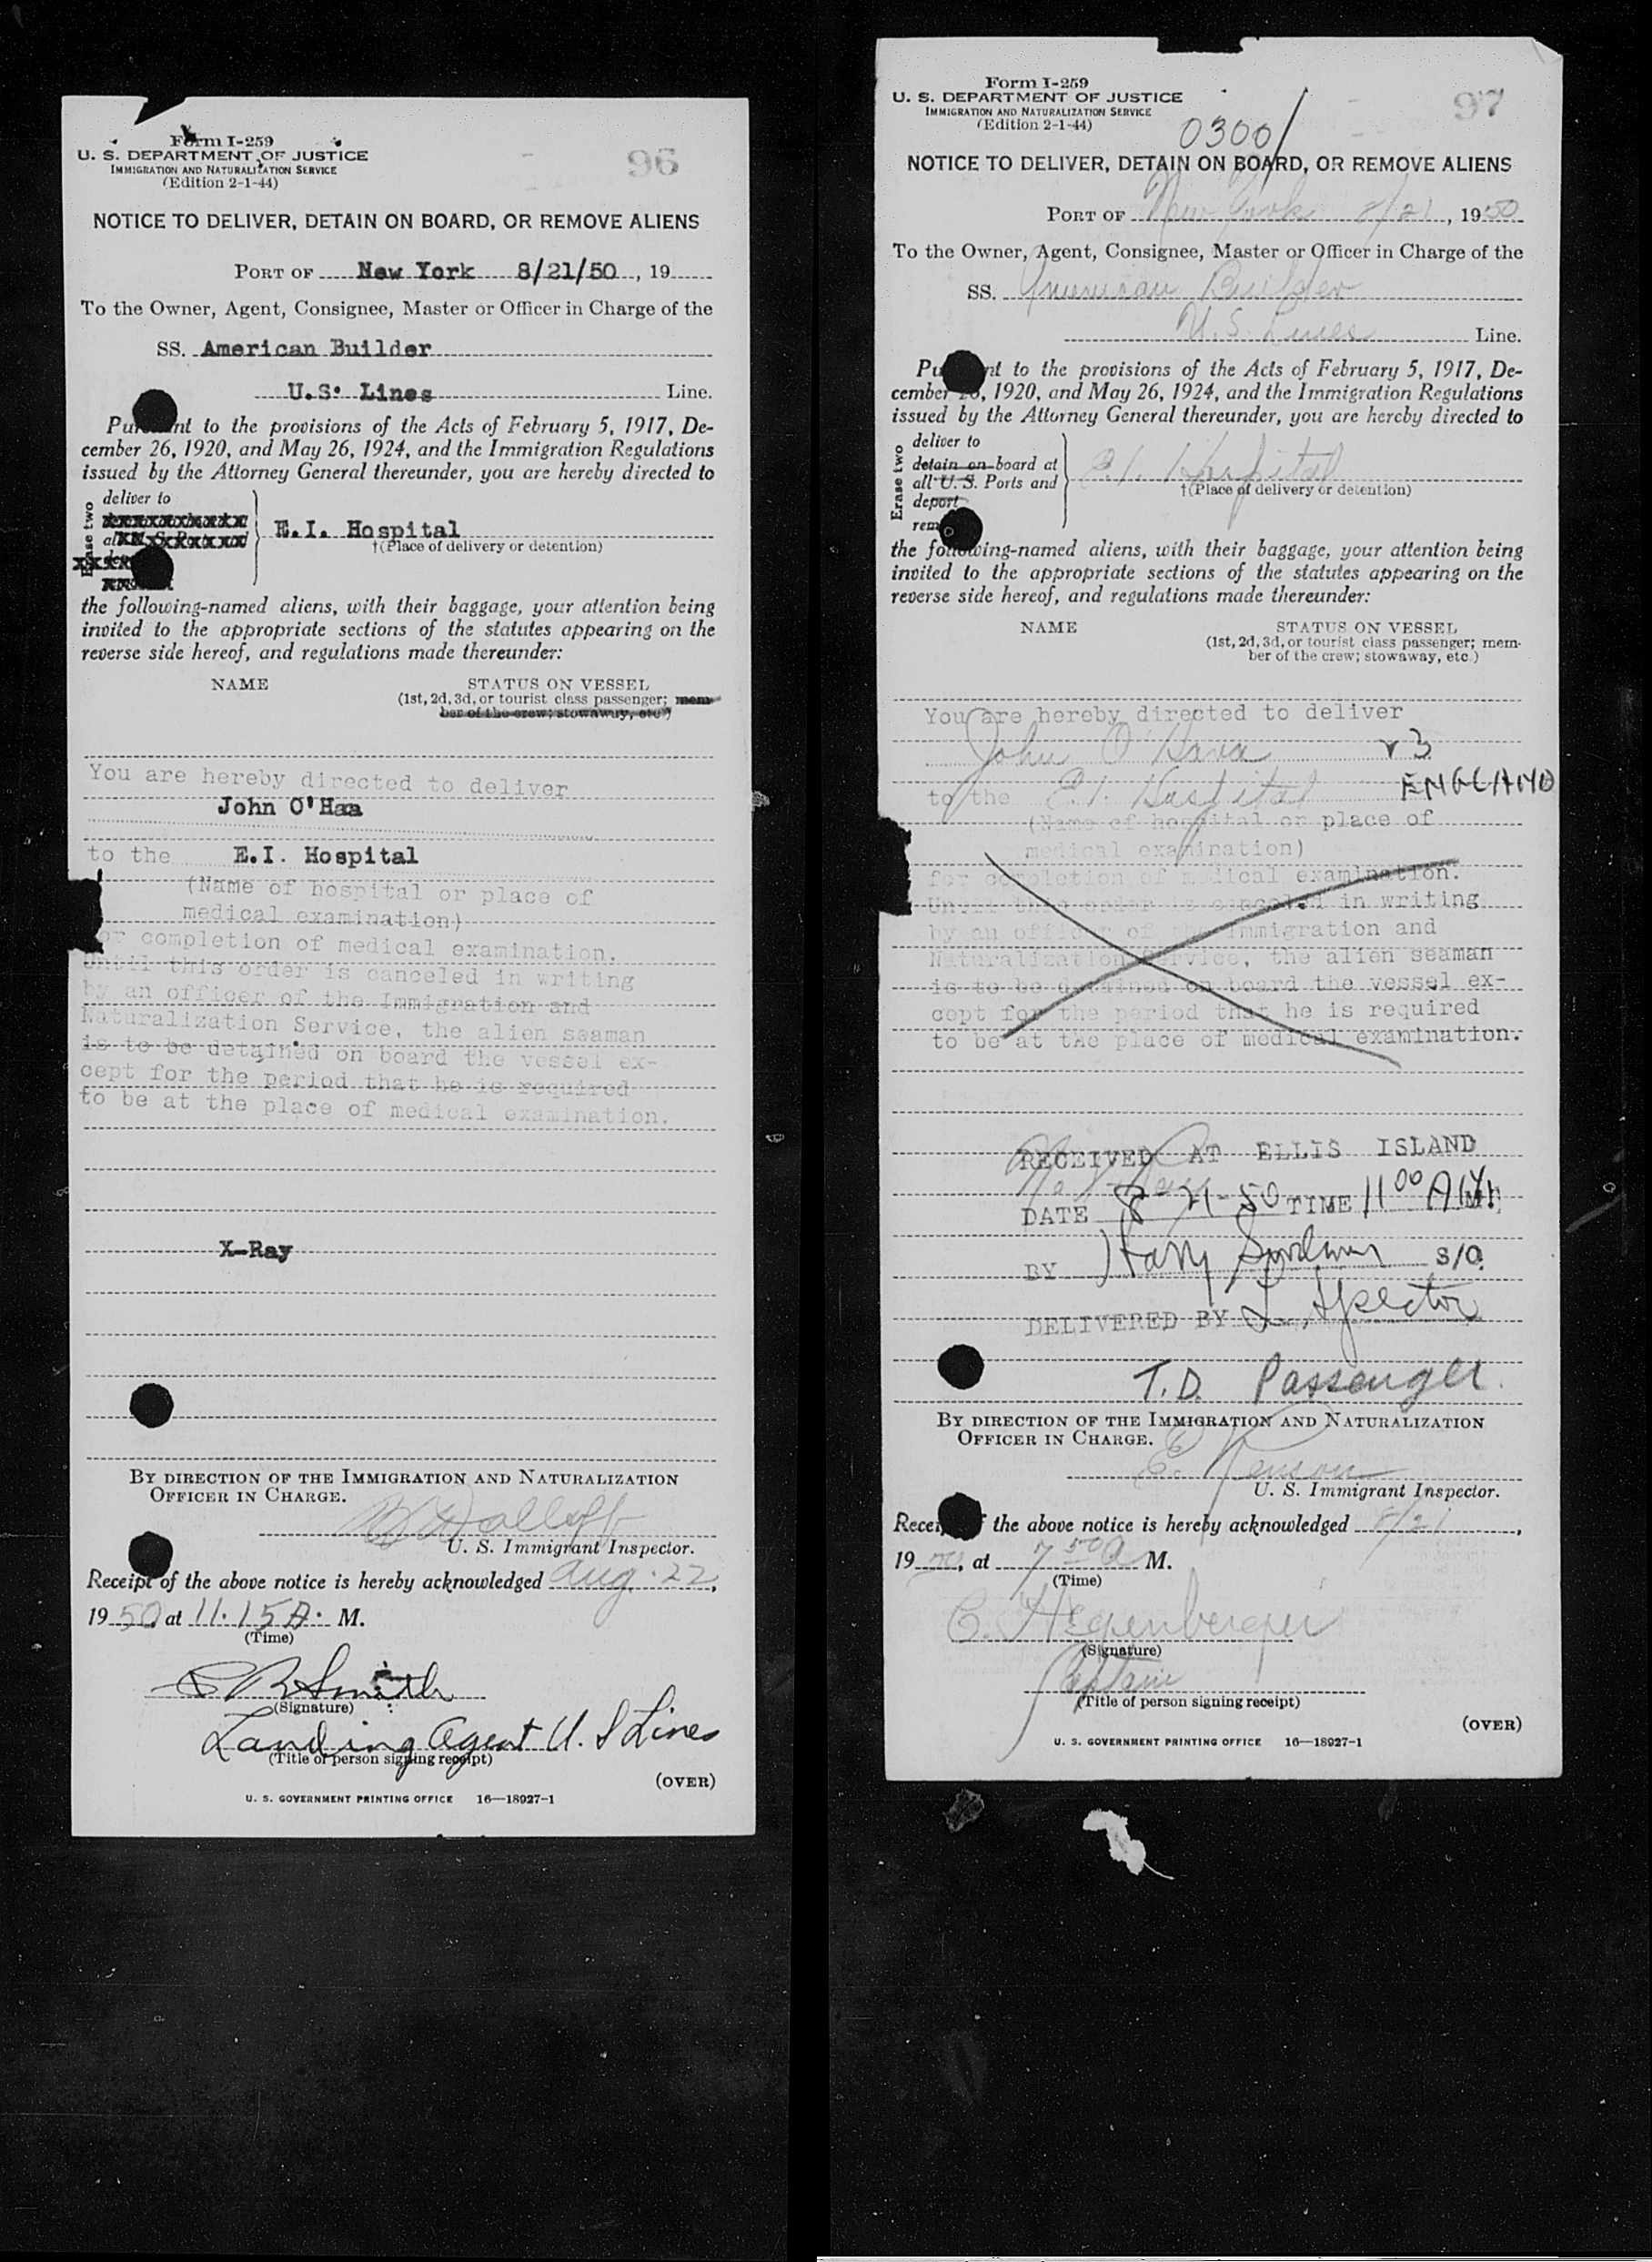 Form I-259
U. S. DEPARTMENT OF JUSTICE
IMMIGRATION AND NATURALIZATION SERVICE
(Edition 2-1-44)
96
NOTICE TO DELIVER, DETAIN ON BOARD, OR REMOVE ALIENS
PORT OF New York 8/21/50, 19
To the Owner, Agent, Consignee, Master or Officer in Charge of the
SS. American Builder
U.S. Lines Line.
Pursuant to the provisions of the Acts of February 5, 1917, De-
cember 26, 1920, and May 26, 1924, and the Immigration Regulations
issued by the Attorney General thereunder, you are hereby directed to
Erase two
deliver to
E.I. Hospital
†(Place of delivery or detention)
the following-named aliens, with their baggage, your attention being
invited to the appropriate sections of the statutes appearing on the
reverse side hereof, and regulations made thereunder:
NAME STATUS ON VESSEL
(1st, 2d, 3d, or tourist class passenger; mem-
ber of the crew; stowaway, etc.)
You are hereby directed to deliver
John O'Haa
to the E.I. Hospital
(Name of hospital or place of
medical examination)
for completion of medical examination.
Until this order is canceled in writing
by an officer of the Immigration and
Naturalization Service, the alien seaman
is to be detained on board the vessel ex-
cept for the period that he is required
to be at the place of medical examination.
X-Ray
BY DIRECTION OF THE IMMIGRATION AND NATURALIZATION
OFFICER IN CHARGE.
U. S. Immigrant Inspector.
Receipt of the above notice is hereby acknowledged Aug. 22,
1950 at 11.15 A. M.
(Time)
Smith
(Signature)
Landing Agent U. S Lines
(Title of person signing receipt)
(OVER)
U. S. GOVERNMENT PRINTING OFFICE 16—18927-1
Form I-259
U. S. DEPARTMENT OF JUSTICE
IMMIGRATION AND NATURALIZATION SERVICE
(Edition 2-1-44)
97
0300/
NOTICE TO DELIVER, DETAIN ON BOARD, OR REMOVE ALIENS
PORT OF New York 8/21, 1950
To the Owner, Agent, Consignee, Master or Officer in Charge of the
SS. American Builder
U.S. Lines Line.
Pursuant to the provisions of the Acts of February 5, 1917, De-
cember 26, 1920, and May 26, 1924, and the Immigration Regulations
issued by the Attorney General thereunder, you are hereby directed to
Erase two
deliver to
detain on board at
all U. S. Ports and
deport
E.I. Hospital
†(Place of delivery or detention)
the following-named aliens, with their baggage, your attention being
invited to the appropriate sections of the statutes appearing on the
reverse side hereof, and regulations made thereunder:
NAME STATUS ON VESSEL
(1st, 2d, 3d, or tourist class passenger; mem-
ber of the crew; stowaway, etc.)
You are hereby directed to deliver
John O'Hara v 3
to the E.I. Hospital ENGLAND
(Name of hospital or place of
medical examination)
for completion of medical examination.
Until this order is canceled in writing
by an officer of the Immigration and
Naturalization Service, the alien seaman
is to be detained on board the vessel ex-
cept for the period that he is required
to be at the place of medical examination.
RECEIVED AT ELLIS ISLAND
DATE 8-21-50 TIME 11 00 AM
BY Harry S/O
DELIVERED BY L. Spector
T.D. Passenger.
BY DIRECTION OF THE IMMIGRATION AND NATURALIZATION
OFFICER IN CHARGE.
U. S. Immigrant Inspector.
Receipt of the above notice is hereby acknowledged 8/21,
1950, at 7 50 A M.
(Time)
C. Hegenberger
(Signature)
Captain
(Title of person signing receipt)
(OVER)
U. S. GOVERNMENT PRINTING OFFICE 16—18927-1